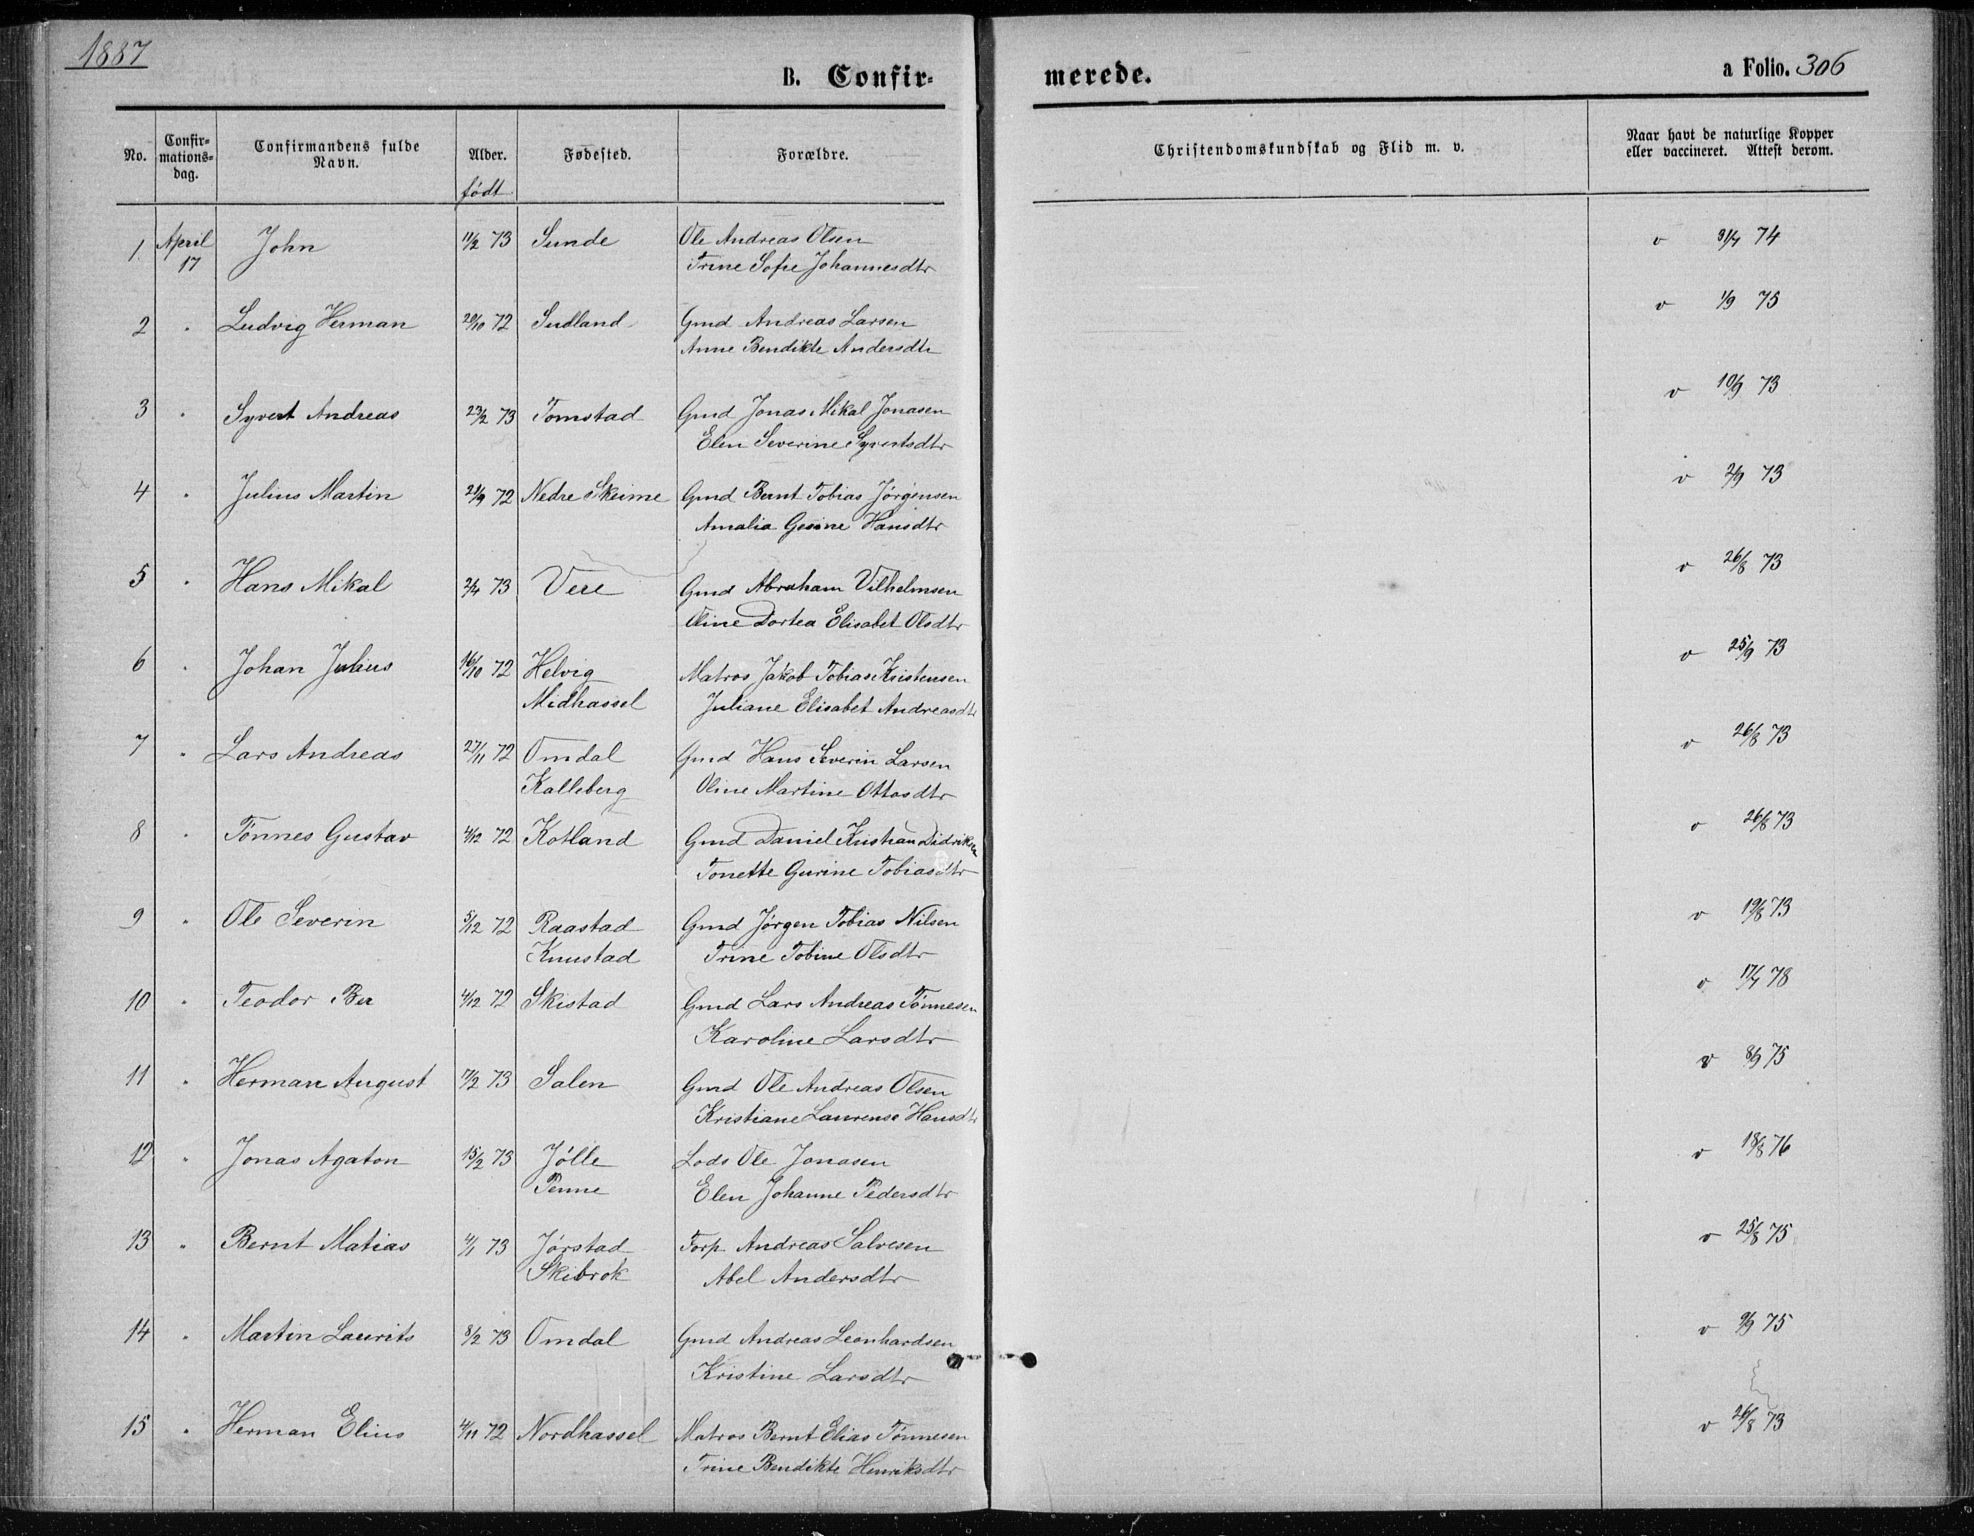 1887
B. Confir-
merede.
a Folio. 306
No.
Confir-
mations-
dag.
Confirmandens fulde
Navn.
Alder.
født
Fødested.
Forældre.
Christendomskundskab og Flid m. v.
Naar havt de naturlige Kopper
eller vaccineret. Attest derom.
1 April 17 John 11/2 73 Sunde Ole Andreas Olsen v 31/7 74
Trine Sofie Johannesdtr
2 " Ludvig Herman 20/10 72 Sudland Gmd Andreas Larsen v 1/9 75
Anne Bendikte Andersdtr
3 " Syvert Andreas 23/2 73 Tomstad Gmd Jonas Mikal Jonasen v 10/9 73
Elen Severine Syvertsdtr
4 " Julius Martin 21/9 72 Nedre Skeime Gmd Bernt Tobias Jørgensen v 2/9 73
Amalia Gesine Hansdtr
5 " Hans Mikal 2/4 73 Vere Gmd Abraham Vilhelmsen v 26/8 73
Oline Dortea Elisabet Olsdtr
6 " Johan Julius 16/10 72 Helvig Matros Jakob Tobias Kristensen v 25/9 73
Midhassel Juliane Elisabet Andreasdtr
7 " Lars Andreas 27/11 72 Omdal Gmd Hans Severin Larsen v 26/8 73
Kalleberg Oline Martine Ottosdtr
8 " Tønnes Gustav 4/12 72 Kotland Gmd Daniel Kristian Didriksen v 26/8 73
Tonette Gurine Tobiasdtr
9 " Ole Severin 5/12 72 Raastad Gmd Jørgen Tobias Nilsen v 19/8 73
Knustad Trine Tobine Olsdtr
10 " Teodor Ber 4/12 72 Skistad Gmd Lars Andreas Tønnesen v 17/7 78
Karoline Larsdtr
11 " Herman August 17/2 73 Salen Gmd Ole Andreas Olsen v 8/9 75
Kristiane Laurense Hansdtr
12 " Jonas Agaton 15/2 73 Jølle Lods Ole Jonasen v 18/8 76
Penne Elen Johanne Pedersdtr
13 " Bernt Matias 4/1 73 Jørstad Forp. Andreas Salvesen v 25/8 75
Skibrok Abel Andersdtr
14 " Martin Laurits 8/2 73 Omdal Gmd Andreas Leonhardsen v 9/9 75
Kristine Larsdtr
15 " Herman Elius 4/11 72 Nordhassel Matros Bernt Elias Tønnesen v 26/8 73
Trine Bendikte Henriksdtr